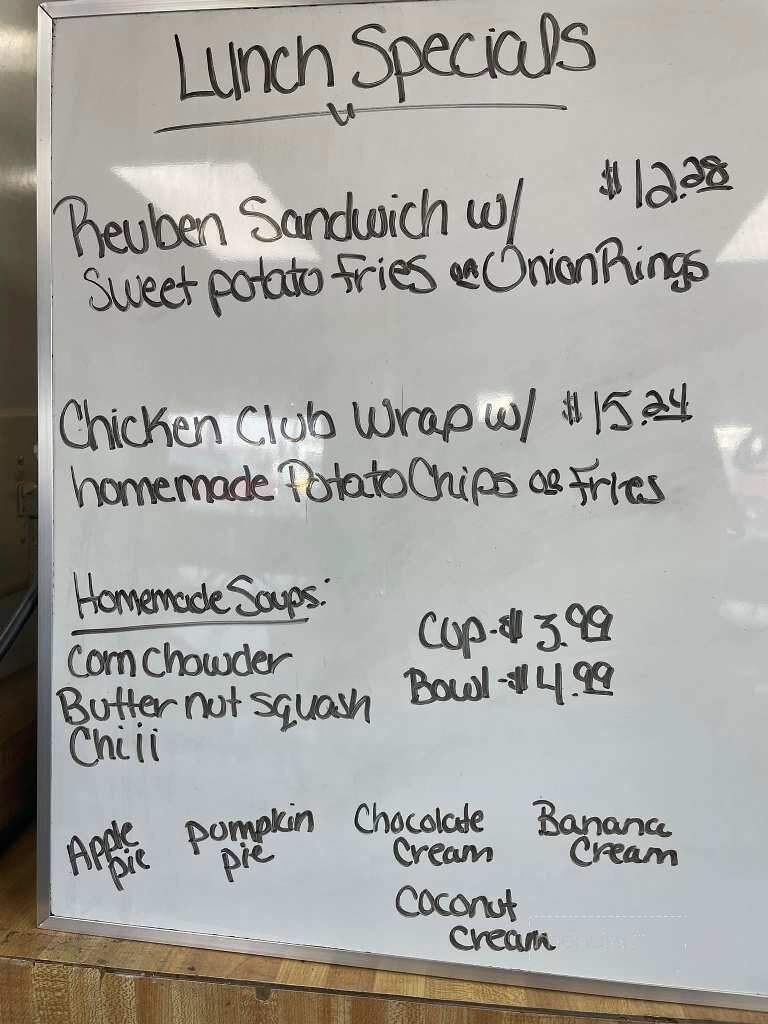 Lunch Specials
Reuben Sandwich w/ $12.28
Sweet potato Fries or Onion Rings
Chicken Club Wrap w/ $15.24
homemade Potato Chips or Fries
Homemade Soups:
Cup-$3.99
Corn Chowder
Bowl-$4.99
Butter nut squash
Chili
Apple pie
pumpkin pie
Chocolate Cream
Banana Cream
Coconut
Cream